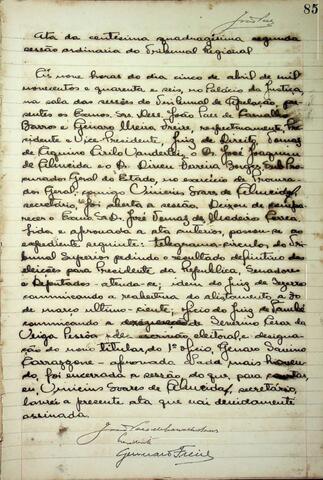 85
João Paes
Ata da centesima quadragesima segunda
sessão ordinaria do Tribunal Regional
Ás nove horas do dia cinco de abril de mil
novecentos e quarenta e seis, no Palacio da Justiça,
na sala das sessões do Tribunal de Apelação, pre-
sentes os Exmos. Srs. Des. João Paes de Carvalho
Barros e Genaro Freire, respectivamente, Presi-
dente e Vice-Presidente, Juiz de Direito Tomaz
de Aquino Cirilo Wanderley, D. José Joaquim
de Almeida e o D. Dirceu Borges, Sub-Pro-
curador Geral do Estado, no exercicio de Procura-
dor Geral, comigo Vinicius Soares de Almeida,
secretario, foi aberta a sessão. Deixou de compa-
recer o Exmo. Sr. D. José Tomaz de Medeiros Correa.
Lida e aprovada a ata anterior, passou-se ao
expediente seguinte: telegrama-circular do Tri-
bunal Superior pedindo o resultado definitivo das
eleições para Presidente da Republica, Senadores
e Deputados - atenda-se; idem do Juiz de
comunicando a reabertura do alistamento, a 30
de março ultimo - ciente; oficio do Juiz de
comunicando a Severino Cesar da
Veiga Pessôa de escrivão eleitoral, e designa-
ção do novo titular, do 1º oficio, Genaro
- aprovado. Nada mais haven-
do, foi encerrada a sessão, do que, para constar,
eu, Vinicius Soares de Almeida, secretário,
lavrei a presente ata que vai devidamente
assinada.
João Paes de Carvalho Barros
Presidente
Gennaro Freire